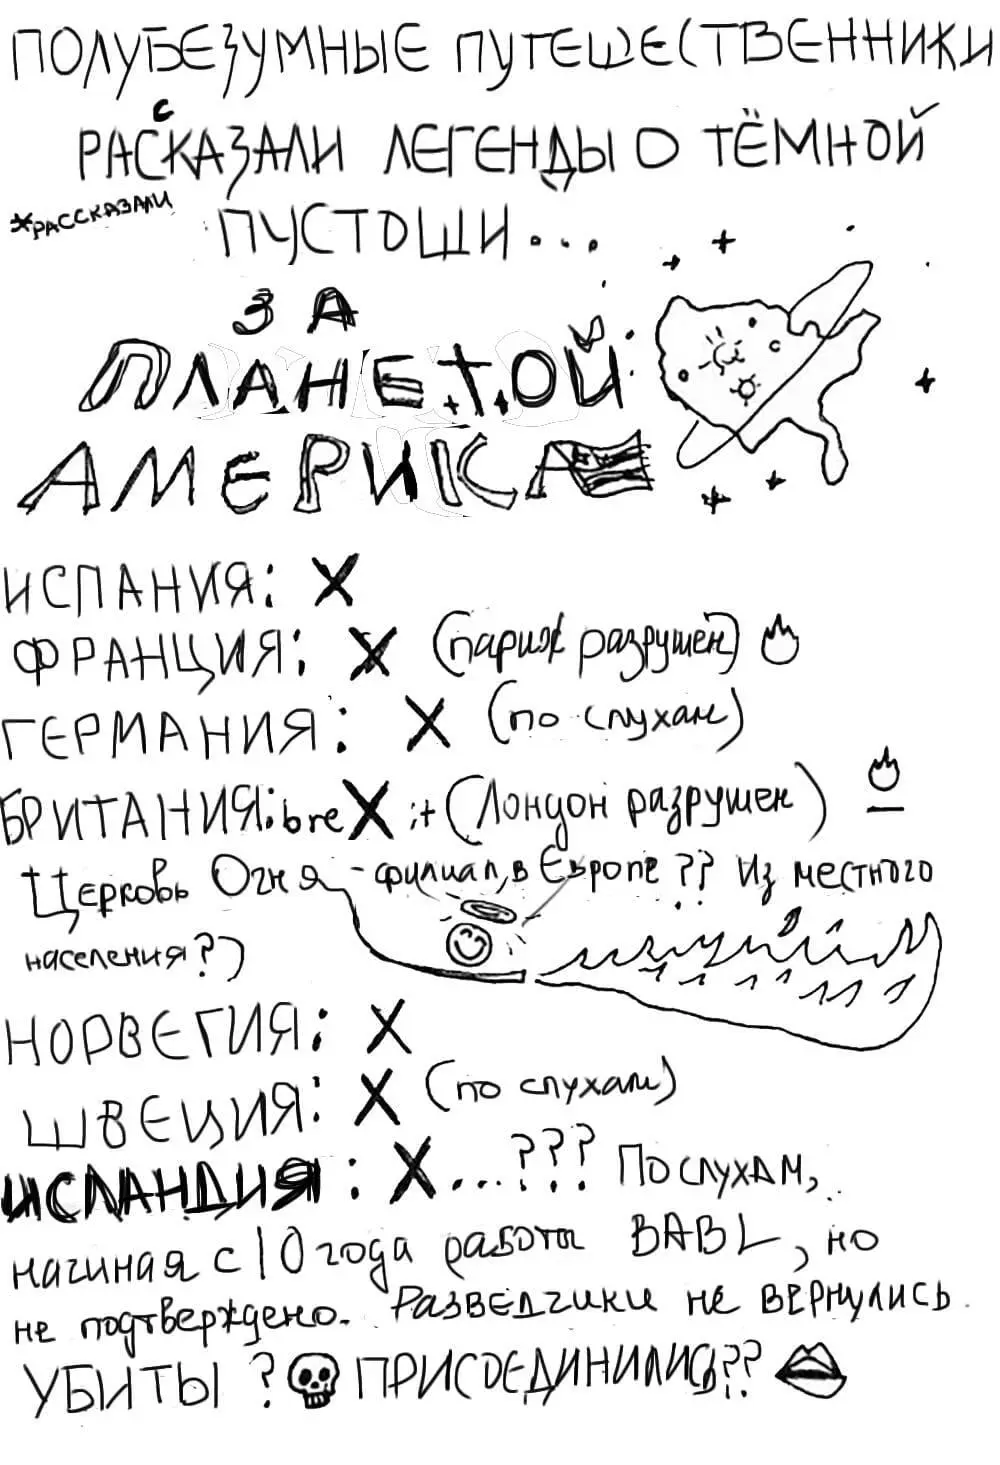 ПОЛУБЕЗУМНЫЕ ПУТЕШЕСТВЕННИКИ
РАСКАЗАЛИ ЛЕГЕНДЫ О ТЁМНОЙ
с
*РАССКАЗАЛИ
ПУСТОШИ...
ЗА
ПЛАНЕТОЙ
АМЕРИКА
ИСПАНИЯ: X
ФРАНЦИЯ: X (Париж разрушен)
ГЕРМАНИЯ: X (по слухам)
БРИТАНИЯ: breXit (Лондон разрушен)
Церковь Огня - филиал, в Европе?? Из местного
населения?)
НОРВЕГИЯ: X
ШВЕЦИЯ: X (по слухам)
ИСЛАНДИЯ: X...??? По слухам,
начиная с 10 года работы BABL, но
не подтверждено. Разведчики не вернулись.
УБИТЫ? ПРИСОЕДИНИЛИСЬ??